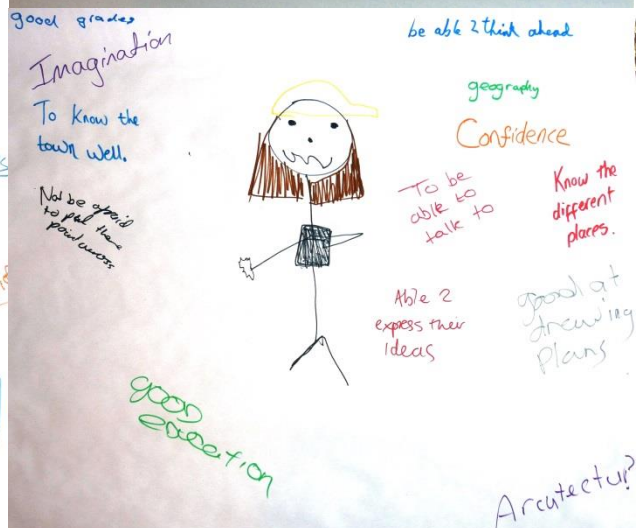 good grades
Imagination
To know the
town well.
Not be afraid
to put there
point across
be able 2 think ahead
geography
Confidence
To be
able to
talk to
Know the
different
places.
Able 2
express their
ideas
good at
drawing
plans
good
education
Arcutectur?